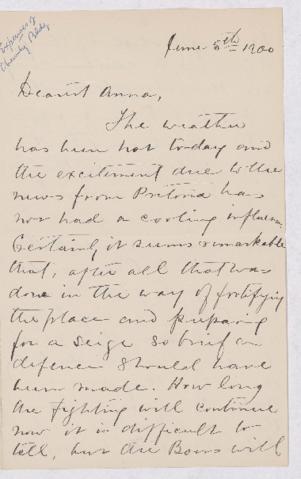 Expenses of
Chemistry Bldg
June 5th 1900
Dearest Anna,
The weather
has been hot to-day and
the excitement due to the
news from Pretoria has
not had a cooling influence.
Certainly it seems remarkable
that, after all that was
done in the way of fortifying
the place and preparing
for a seige so brief a
defence should have
been made. How long
the fighting will continue
now it is difficult to
tell, but the Boers will